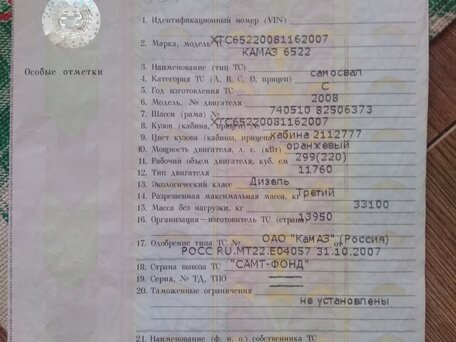 Особые отметки
1. Идентификационный номер (VIN)
XTC65220081162007
2. Марка, модель ТС
КАМАЗ 6522
3. Наименование (тип ТС)
самосвал
4. Категория ТС (A, B, C, D, прицеп)
C
5. Год изготовления ТС
2008
6. Модель, № двигателя
740510 82506373
7. Шасси (рама) №
XTC65220081162007
8. Кузов (кабина, прицеп) №
кабина 2112777
9. Цвет кузова (кабины, прицепа)
оранжевый
10. Мощность двигателя, л. с. (кВт)
299(220)
11. Рабочий объем двигателя, куб. см
11760
12. Тип двигателя
Дизель
13. Экологический класс
Третий
14. Разрешенная максимальная масса, кг
33100
15. Масса без нагрузки, кг
13950
16. Организация-изготовитель ТС (страна)
ОАО "КамАЗ" (Россия)
17. Одобрение типа ТС № от
РОСС RU.МТ22.Е04057 31.10.2007
"САМТ-ФОНД"
18. Страна вывоза ТС
19. Серия, № ТД, ТПО
20. Таможенные ограничения
не установлены
21. Наименование (ф. и. о.) собственника ТС